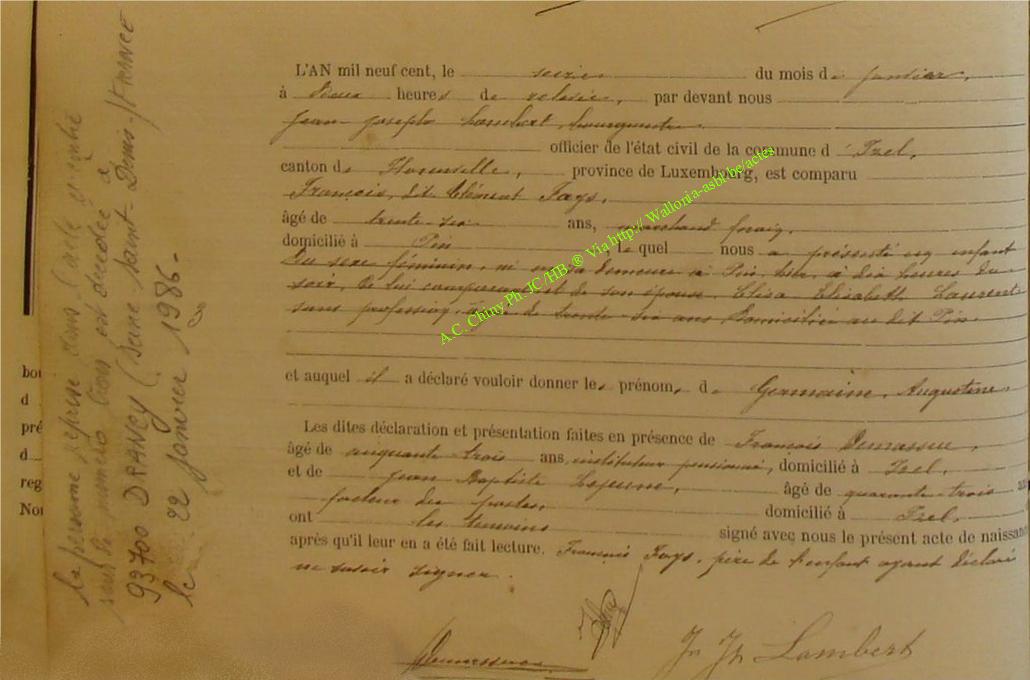 L'AN mil neuf cent, le seize du mois de janvier,
à deux heures de relevée, par devant nous
Jean-Joseph Lambert, bourgmestre
officier de l'état civil de la commune d'Izel,
canton de Florenville, province de Luxembourg, est comparu
François, dit Clément Fays,
âgé de trente-six ans, marchand forain,
domicilié à Pin Le quel nous a présenté un enfant
du sexe féminin, né en sa demeure à Pin, hier, à dix heures du
soir, de lui comparant et de son épouse, Elisa Elisabeth Laurent
sans profession, âgée de trente-six ans domiciliée au dit Pin
et auquel il a déclaré vouloir donner les prénoms de Germaine, Augustine
Les dites déclaration et présentation faites en présence de François
âgé de cinquante trois ans, instituteur pensionné, domicilié à Izel,
et de Jean Baptiste Lejeune, âgé de quarante-trois
facteur des postes, domicilié à Izel,
ont les témoins signé avec nous le présent acte de naissan
après qu'il leur en a été fait lecture. François Fays, père de l'enfant ayant déclaré
ne savoir signer.
J. Jh Lambert
la personne reprise dans l'acte
sous le numéro est décédée à
93700 DRANCY (Seine Saint-Denis-/FRANCE
le 22 janvier 1986-
A.C. Chiny Ph. JC/HB ® Via http:// Wallonia-asbl.be/actes
bou
d
pré
d
reg
Nou